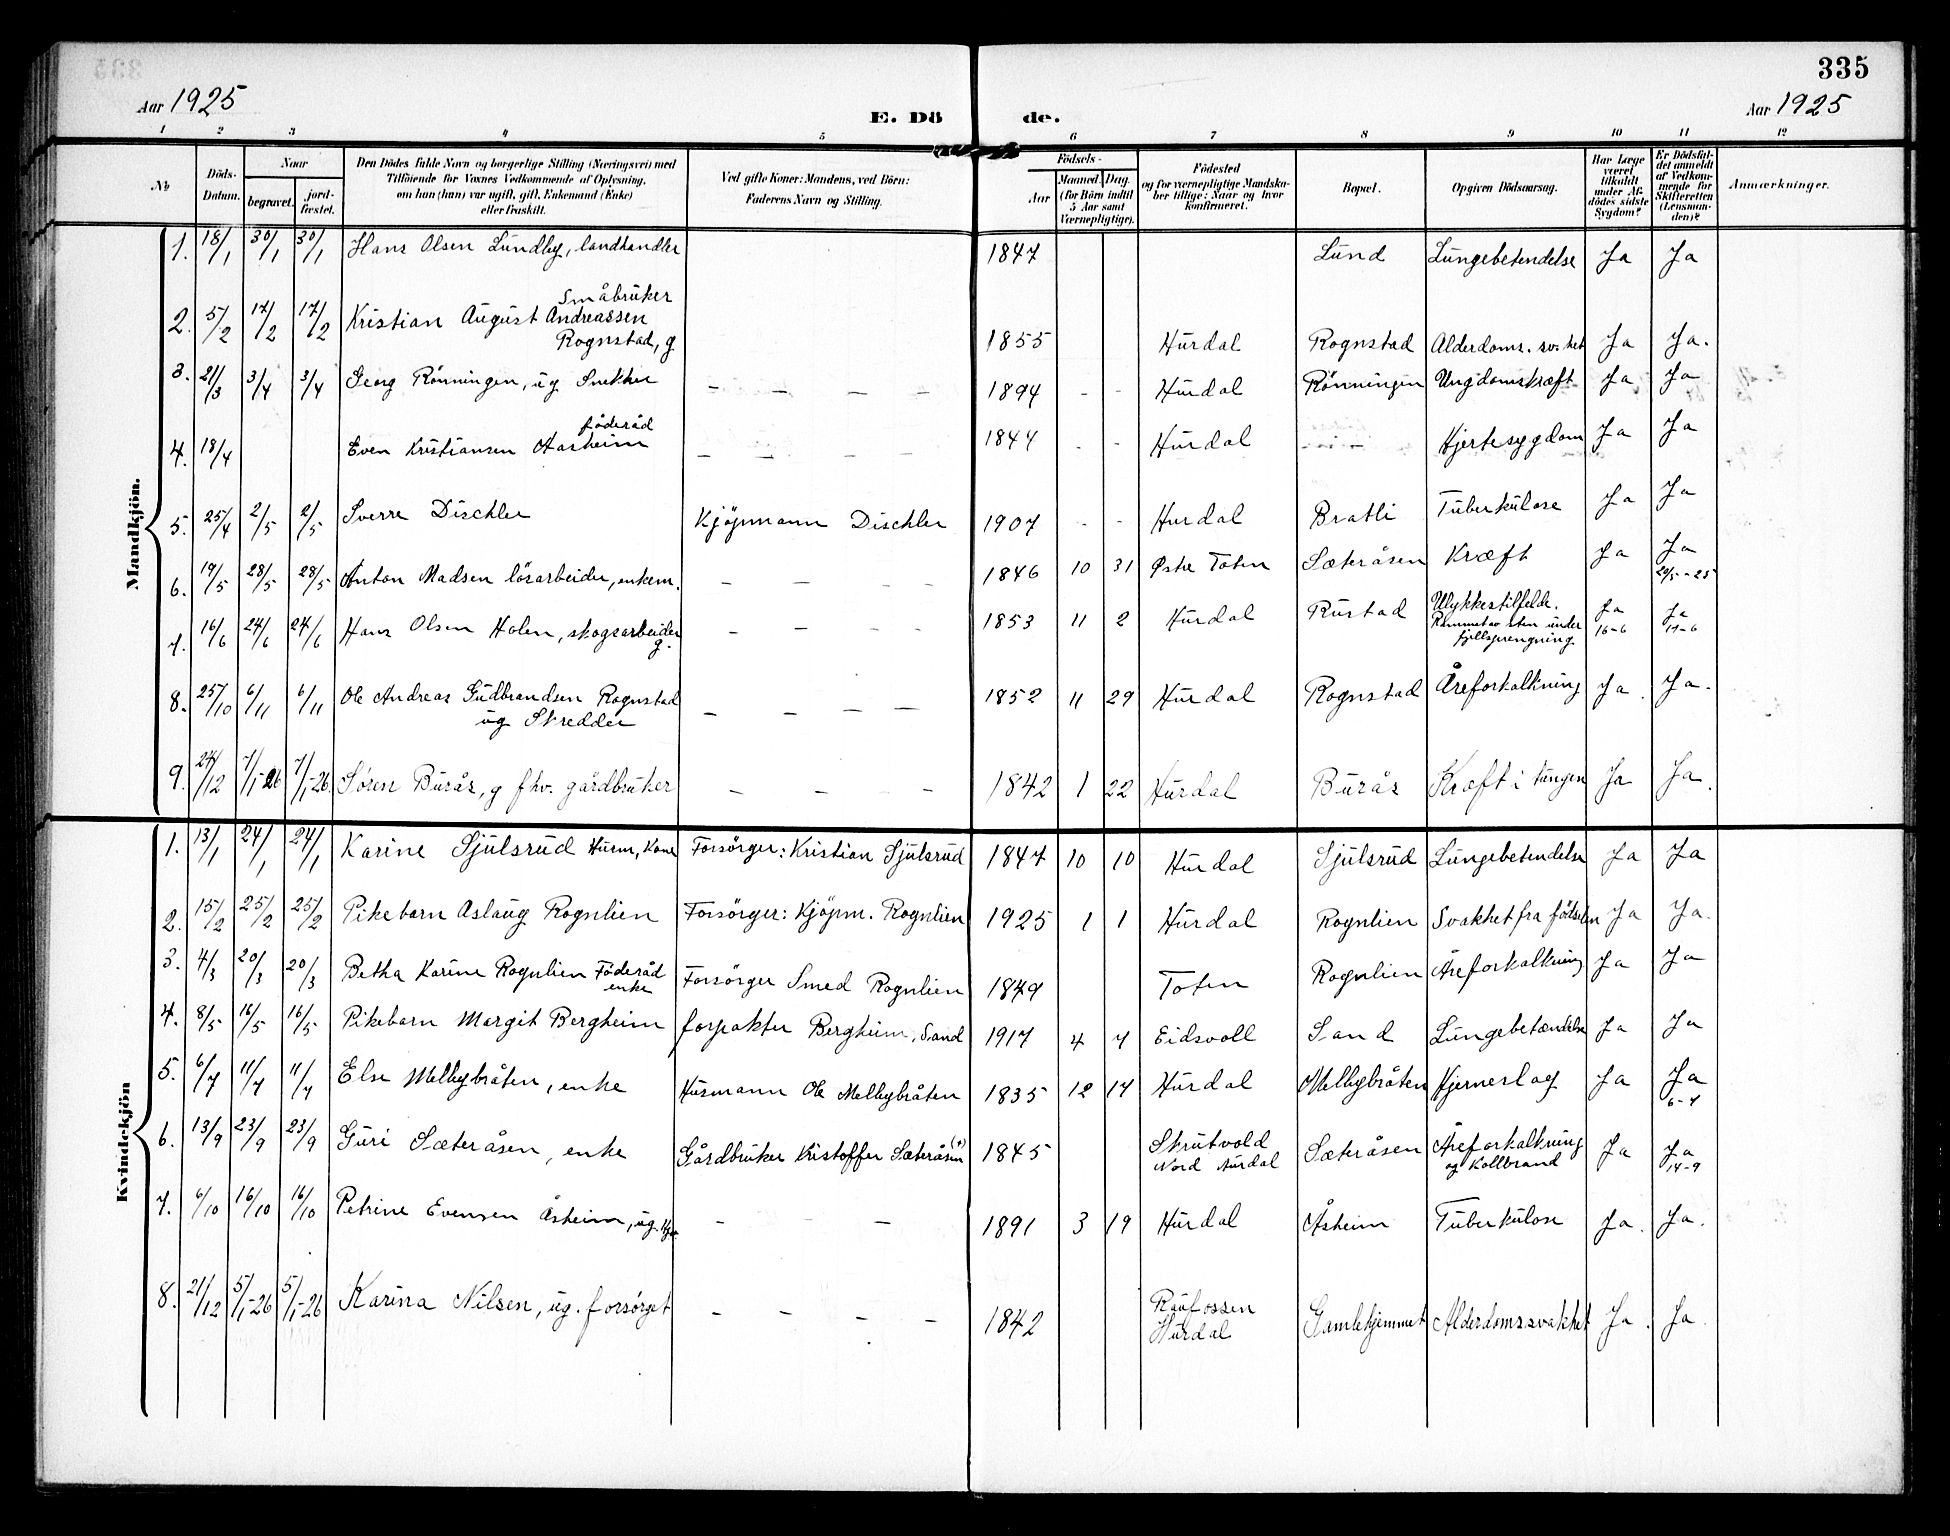 335
Aar 1925
E. Döde.
Aar 1925
1 2 3 4 5 6 7 8 9 10 11 12
№
Döds-Datum.
Naar
begravet.
jord-fæstet.
Den Dödes fulde Navn og borgerlige Stilling (Næringsvei) med
Tilföiende for Voxnes Vedkommende af Oplysning,
om han (hun) var ugift, gift, Enkemand (Enke)
eller fraskilt.
Ved gifte Koner: Mandens, ved Börn:
Faderens Navn og Stilling.
Födsels-
Aar
Maaned. Dag.
(for Börn indtil
5 Aar samt
Værnepligtige).
Födested
og for værnepligtige Mandska-
ber tillige: Naar og hvor
konfirmeret.
Bopæl.
Opgiven Dödsaarsag.
Har Læge
været
tilkaldt
under Af-
dödes sidste
Sygdom?
Er Dödsfal-
det anmeldt
af Vedkom-
mende for
Skifteretten
(Lensman-
den)?
Anmærkninger.
Mandkjön.
1. 18/1 30/1 30/1 Hans Olsen Lundby, landhandler 1847 Lund Lungebetendelse Ja Ja
Småbruker
2. 5/2 17/2 17/2 Kristian August Andreassen
Rognstad, g 1855 Hurdal Rognstad Alderdoms.sv.het Ja Ja.
3. 21/3 3/4 3/4 Georg Rönningen, ug Snekker – – – – 1894 - - Hurdal Rönningen Ungdomskræft Ja Ja
föderåd
4. 18/4 Even Kristiansen Aasheim – – – – 1844 - - Hurdal –"– Hjertesygdom Ja Ja
5. 25/4 2/5 2/5 Sverre Dischler Kjöpmann Dischler 1907 - - Hurdal Bratli Tuberkulose Ja Ja
6. 19/5 28/5 28/5 Anton Madsen lösarbeider, enkem. – – – – 1846 10 31 Østre Toten Sæteråsen Kræft Ja Ja
20/5-25
7. 16/6 24/6 24/6 Hans Olsen Holen, skogsarbeider
g. – – – – 1853 11 2 Hurdal Rustad Ulykkestilfelde.
Rammet av sten under
fjellsprengning Ja
16-6 Ja
17-6
8. 25/10 6/11 6/11 Ole Andreas Gudbrandsen Rognstad
ug Skredder – – – – 1852 11 29 Hurdal Rognstad Åreforkalkning Ja. Ja.
9. 24/12 7/1-26 7/1-26. Søren Burås, g fhv. gårdbruker – – – 1842 1 22 Hurdal Burås Kræft i tungen Ja Ja.
Kvindekjön
1. 13/1 24/1 24/1 Karine Sjulsrud Husm, Kone Forsörger: Kristian Sjulsrud 1847 10 10 Hurdal Sjulsrud Lungebetendelse Ja Ja
2. 15/2 25/2 25/2 Pikebarn Aslaug Rognlien Forsörger: Kjöpm. Rognlien 1925 1 1 Hurdal Rognlien Svakhet fra födselen Ja Ja.
3. 4/3 20/3 20/3 Betha Karine Rognlien Föderåd
enke Forsörger Smed Rognlien 1849 Toten Rognlien Åreforkalkning Ja Ja
4. 8/5 16/5 16/5 Pikebarn Margit Bergheim forpakter Bergheim, Sand 1917 4 7 Eidsvoll Sand Lungebetændelse Ja Ja
5. 6/7 11/7 11/7 Else Melbybråten, enke Husmann Ole Melbybråten 1835 12 14 Hurdal Melbybråten Hjerneslag Ja Ja
6-7
6. 13/9 23/9 23/9 Guri Sæteråsen, enke Gårdbruker Kristoffer Sæteråsen (+) 1845 Skrutvold
Nord Aurdal Sæteråsen Åreforkalkning
og Kollbrand Ja Ja
14-9
7. 6/10 16/10 16/10 Petrine Evensen Åsheim, ug. – – 1891 3 19 Hurdal Åsheim Tuberkulose Ja. Ja.
8. 21/12 5/1-26 5/1-26 Karina Nilsen, ug. forsørget – – – – 1842 Raufossen
Hurdal Gamlehjemmet Alderdomssvakhet Ja. Ja